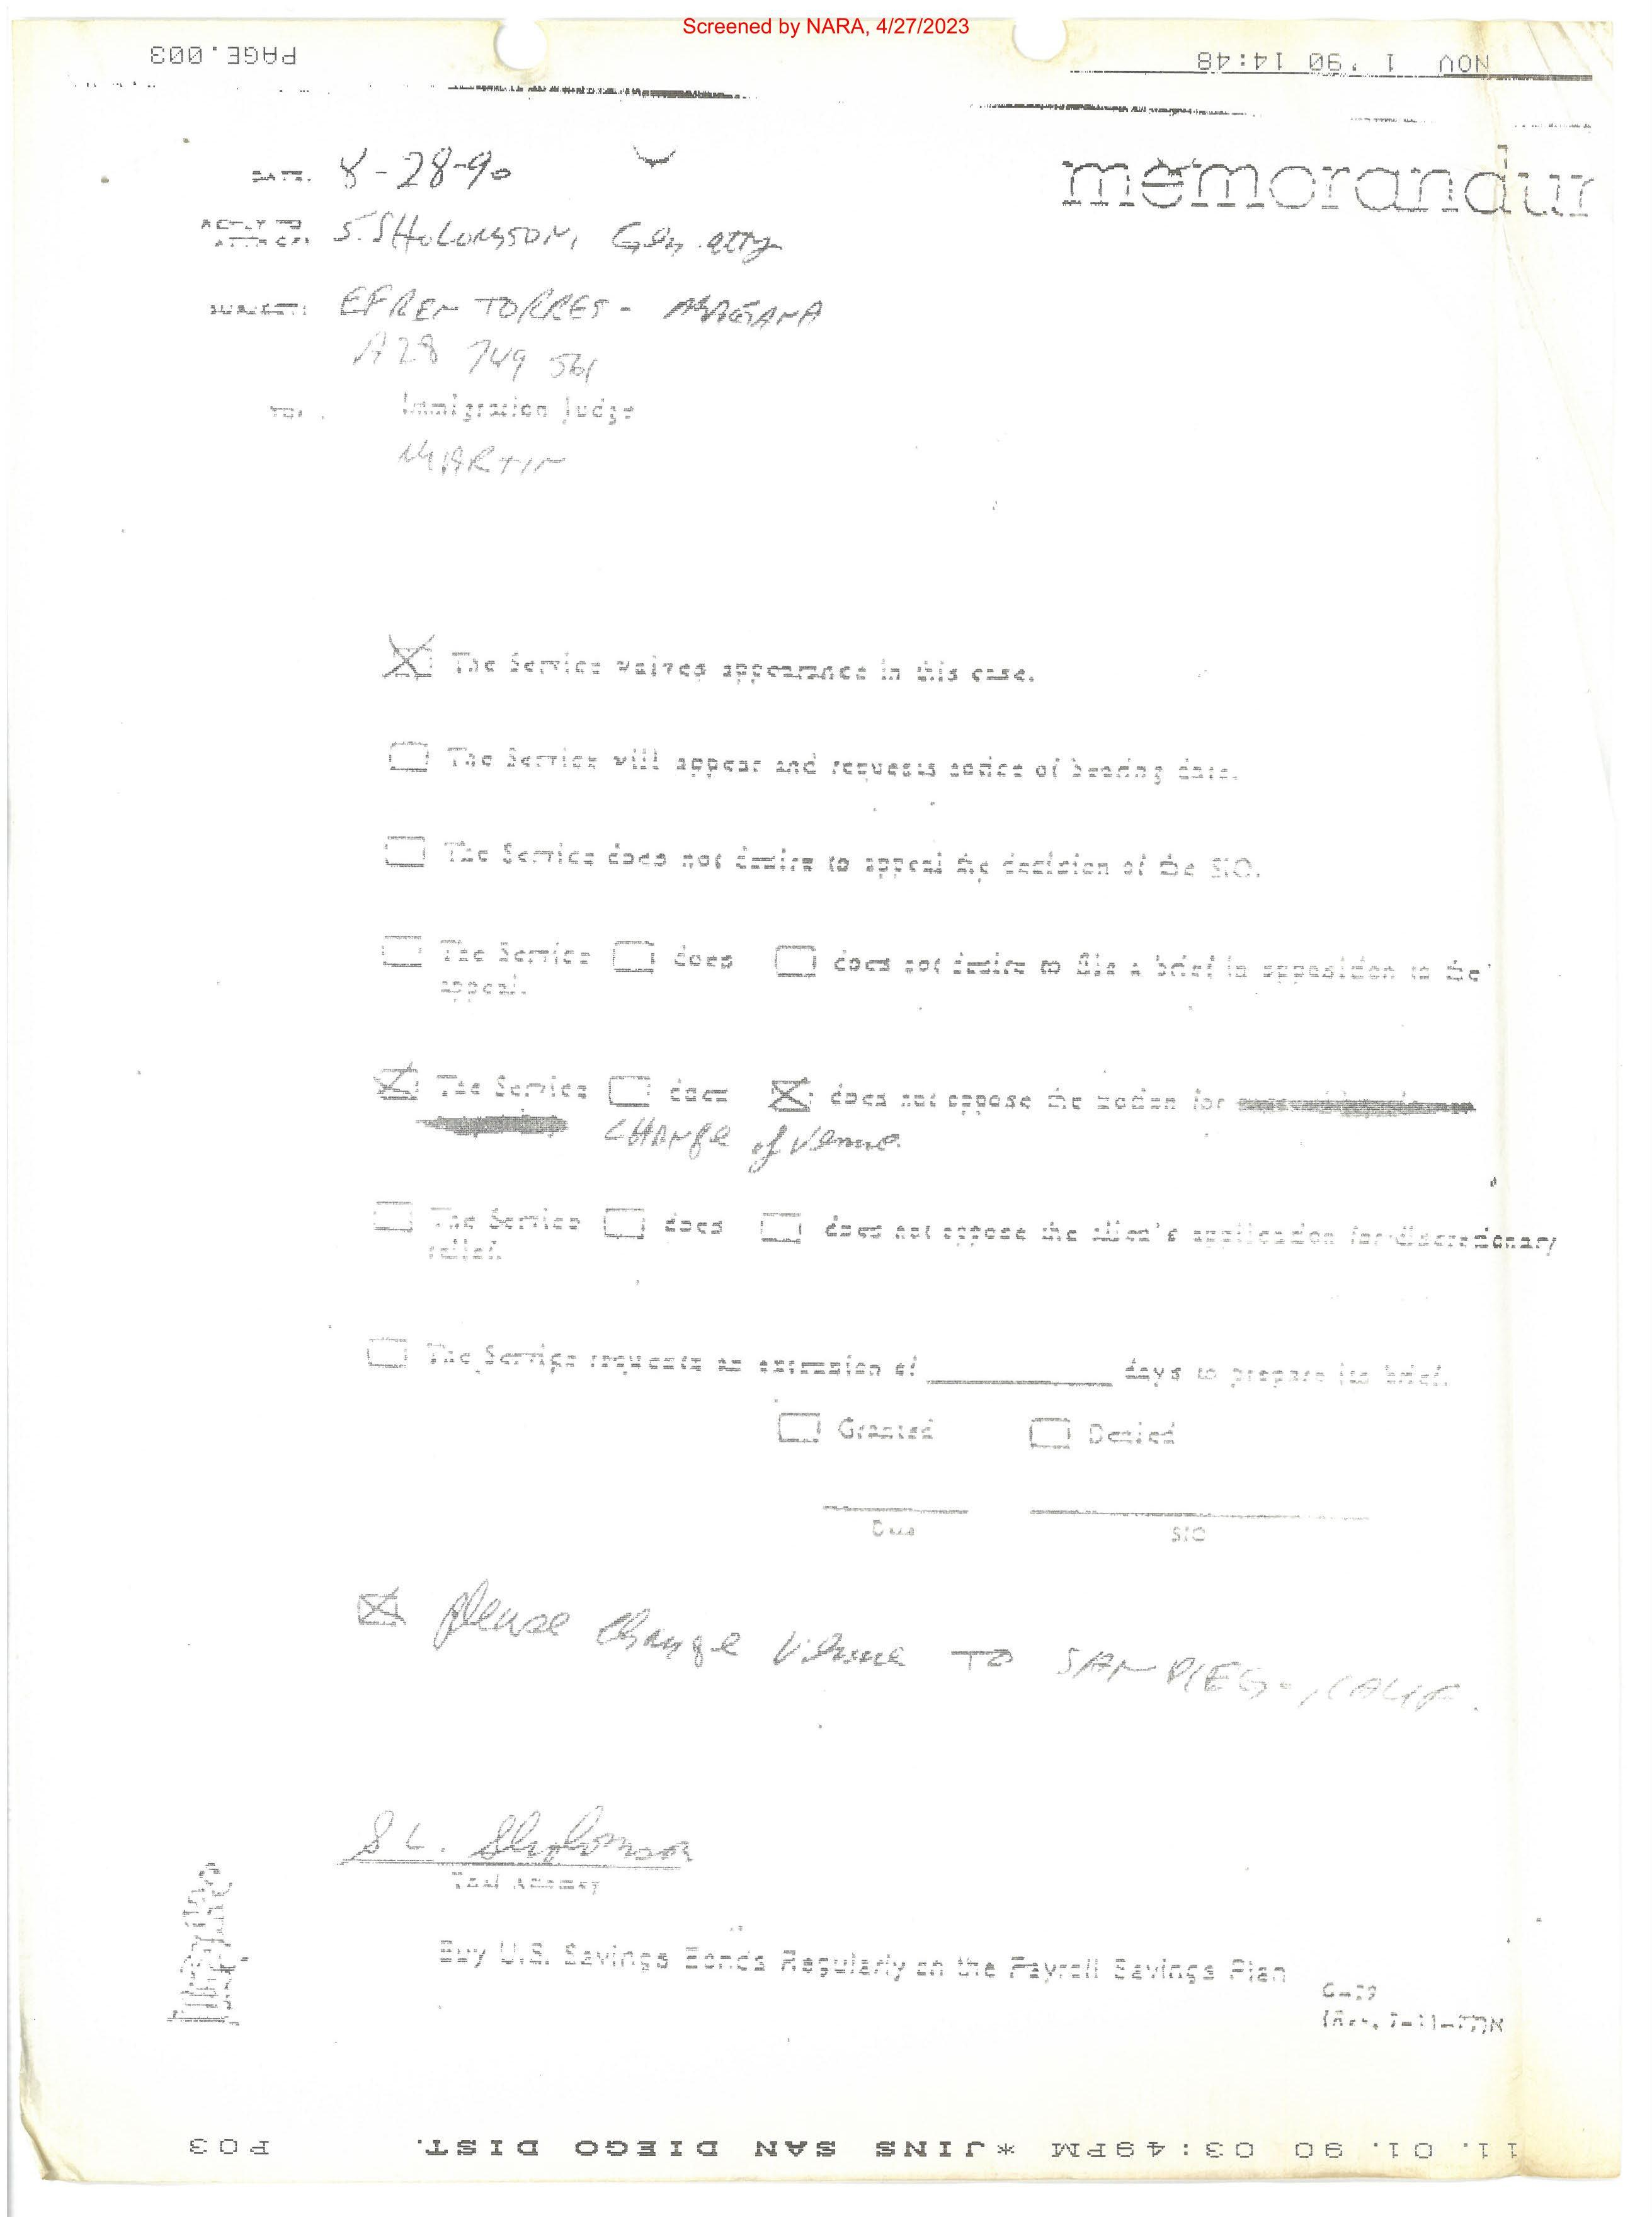 Screened by NARA, 4/27/2023
PAGE.003
NOV 1 '90 14:48
memorandum
DATE: 8-28-90
REPLY TO
ATTN OF: S. SHOLOMSON, Gen. atty
SUBJECT: EFREN TORRES - MAGANA
A28 749 561
TO: Immigration Judge
MARTIN
The Service waives appearance in this case.
The Service will appear and requests notice of hearing date.
The Service does not desire to appeal the decision of the SIO.
The Service does does not desire to file a brief in opposition to the
appeal.
The Service does does not oppose the motion for
CHANge of Venue.
The Service does does not oppose the alien's application for discretionary
relief.
The Service requests an extension of days to prepare its brief.
Granted Denied
Date SIO
Please change Venue TO SAN DIEGO, CALIF.
S L. Sholomson
Trial Attorney
Buy U.S. Savings Bonds Regularly on the Payroll Savings Plan
G-29
11. 01. 90 03:49PM *JINS SAN DIEGO DIST. P03